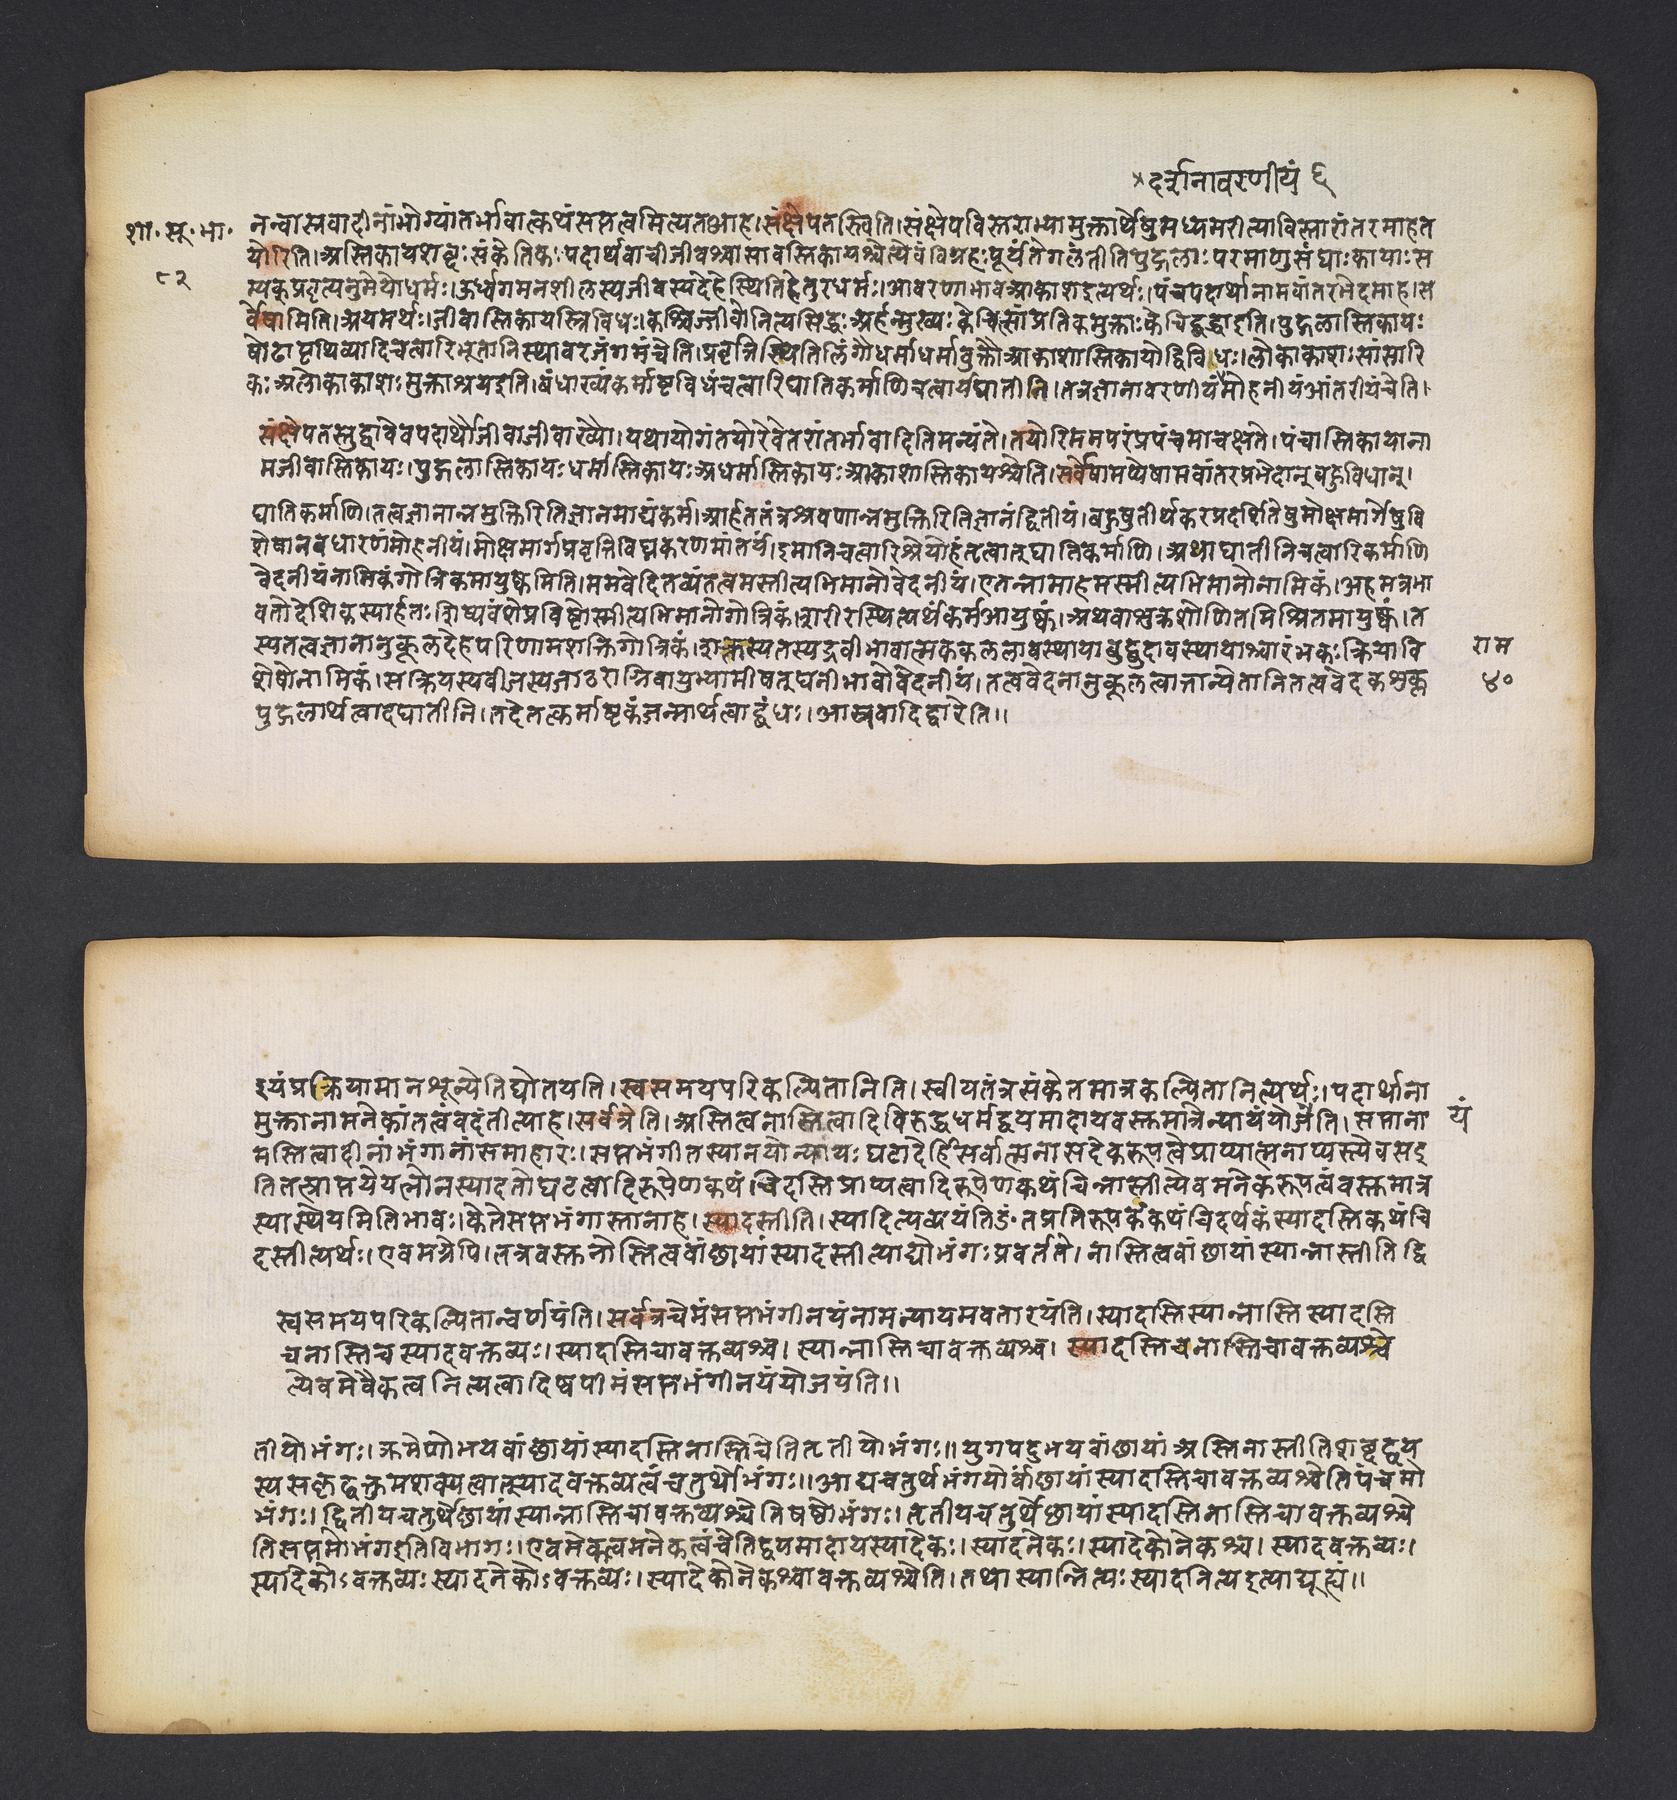 दर्शनावरणीयं ६
शा॰ सू॰ भा॰
८२
नन्वास्रवादीनांभोग्यांतर्भावात्कथंसप्तत्वमित्यतआह।संक्षेपतस्त्विति।संक्षेपविस्तराभ्यामुक्तार्थेषुमध्यमरीत्याविस्तारांतरमाहत
योरिति।अस्तिकायशब्दःसंकेतिकःपदार्थवाचीजीवश्चासावस्तिकायश्चेत्येवंविग्रहःपूर्यंतेगलंतीतिपुद्गलाःपरमाणुसंघाःकायाःस
म्यक्प्रवृत्यनुमेयोधर्मः।ऊर्ध्वगमनशीलस्यजीवस्यदेहेस्थितिहेतुरधर्मः।आवरणाभावआकाशइत्यर्थः।पंचपदार्थानामवांतरभेदमाह।स
र्वेषामिति।अयमर्थः।जीवास्तिकायस्त्रिविधः।कश्चिज्जीवोनित्यसिद्धःअर्हन्मुख्यःकेचित्सांप्रतिकमुक्ताःकेचिद्बद्धाइति।पुद्गलास्तिकायः
षोढापृथिव्यादिचत्वारिभूतानिस्थावरजंगमंचेति।प्रवृत्तिस्थितिलिंगौधर्माधर्मावुक्तौआकाशास्तिकायोद्विविधः।लोकाकाशःसांसारि
कःअलोकाकाशःमुक्ताश्रयइति।बंधाख्यंकर्माष्टविधंचत्वारिघातिकर्माणिचत्वार्यघातीनि।तत्रज्ञानावरणीयंमोहनीयंआंतरीयंचेति।
संक्षेपतस्तुद्वावेवपदार्थौजीवाजीवाख्यौ।यथायोगंतयोरेवेतरांतर्भावादितिमन्यंते।तयोरिममपरंप्रपंचमाचक्षते।पंचास्तिकायाना
मजीवास्तिकायः।पुद्गलास्तिकायःधर्मास्तिकायःअधर्मास्तिकायःआकाशास्तिकायश्चेति।सर्वेषामप्येषामवांतरप्रभेदान्बहुविधान्।
घातिकर्माणि।तत्वज्ञानान्नमुक्तिरितिज्ञानमाद्यंकर्म।आर्हततंत्रश्रवणान्नमुक्तिरितिज्ञानंद्वितीयं।बहुषुतीर्थकरप्रदर्शितेषुमोक्षमार्गेषुवि
शेषानवधारणंमोहनीयं।मोक्षमार्गप्रवृत्तिविघ्नकरणमांतर्यं।इमानिचत्वारिश्रेयोहंतृत्वात्घातिकर्माणि।अथाघातीनिचत्वारिकर्माणि
वेदनीयंनामिकंगोत्रिकमायुष्कमिति।ममवेदितव्यंतत्वमस्तीत्यभिमानोवेदनीयं।एतन्नामाहमस्मीत्यभिमानोनामिकं।अहमत्रभ
वतोदेशिकस्यार्हतःशिष्यवंशेप्रविष्टोस्मीत्यभिमानोगोत्रिकं।शरीरस्थित्यर्थंकर्मआयुष्कं।अथवाशुक्रशोणितमिश्रितमायुष्कं।त
स्यतत्वज्ञानानुकूलदेहपरिणामशक्तिगोत्रिकं।शक्तस्यतस्यद्रवीभावात्मककललावस्थायाबुद्बुदावस्थायाश्चारंभकःक्रियावि
शेषोनामिकं।सक्रियस्यबीजस्यजाठराग्निवायुभ्यामीषत्घनीभावोवेदनीयं।तत्ववेदनानुकूलत्वात्तान्येतानितत्ववेदकशुक्ल
पुद्गलार्थत्वादघातीनि।तदेतत्कर्माष्टकंजन्मार्थत्वाद्बंधः।आस्रवादिद्वारेति॥
राम
४०
इयंप्रक्रियामानशून्येतिद्योतयति।स्वसमयपरिकल्पितानिति।स्वीयतंत्रसंकेतमात्रकल्पितानित्यर्थः।पदार्थाना
मुक्तानामनेकांतत्वंवदंतीत्याह।सर्वत्रेति।अस्तित्वनास्तित्वादिविरुद्धधर्मद्वयमादायवस्तुमात्रेन्यायंयोजेति।सप्ताना
यं
मस्तित्वादीनांभंगानांसमाहारः।सप्तभंगीतस्यानयोन्यायःघटादेर्हिसर्वात्मनासदैकरूपत्वेप्राप्यात्मनाप्यस्त्येवसइ
तितत्प्राप्तयेयत्नोनस्यादतोघटत्वादिरूपेणकथंचिदस्तिप्राप्यत्वादिरूपेणकथंचिन्नास्तीत्येवमनेकरूपत्वंवस्तुमात्र
स्यास्थेयमितिभावः।केतेसप्तभंगास्तानाह।स्यादस्तीति।स्यादित्यव्ययंतिङंतप्रतिरूपकंकथंचिदर्थकंस्यादस्तिकथंचि
दस्तीत्यर्थः।एवमग्रेपि।तत्रवस्तुनोस्तित्ववांछायांस्यादस्तीत्याद्योभंगःप्रवर्तते।नास्तित्ववांछायांस्यान्नास्तीतिद्वि
स्वसमयपरिकल्पितान्वर्णयंति।सर्वत्रचेमंसप्तभंगीनयंनामन्यायमवतारयंति।स्यादस्तिस्यान्नास्तिस्यादस्ति
चनास्तिचस्यादवक्तव्यः।स्यादास्तिचावक्तव्यश्च।स्यान्नास्तिचावक्तव्यश्च।स्यादस्तिचनास्तिचावक्तव्यश्चे
त्येवमेवैकत्वनित्यत्वादिष्वपीमंसप्तभंगीनयंयोजयंति॥
तीयोभंगः।क्रमेणोभयवांछायांस्यादस्तिनास्तिचेतितृतीयोभंगः॥युगपदुभयवांछायांअस्तिनास्तीतिशब्दद्वय
स्यसकृद्वक्तुमशक्यत्वात्स्यादवक्तव्यत्वंचतुर्थोभंगः॥आद्यचतुर्थभंगयोर्वांछायांस्यादास्तिचावक्तव्यश्चेतिपंचमो
भंगः।द्वितीयचतुर्थेछायांस्यान्नास्तिचावक्तव्यश्चेतिषष्ठोभंगः।तृतीयचतुर्थेछायांस्यादस्तिनास्तिचावक्तव्यश्चे
तिसप्तमोभंगइतिविभागः।एवमेकत्वमनेकत्वंचेतिद्वयमादायस्यादेकः।स्यादनेकः।स्यादेकोनेकश्च।स्यादवक्तव्यः।
स्यादेकोऽवक्तव्यःस्यादनेकोऽवक्तव्यः।स्यादेकोनेकश्चावक्तव्यश्चेति।तथास्यान्नित्यःस्यादनित्यइत्याद्यूह्यं॥